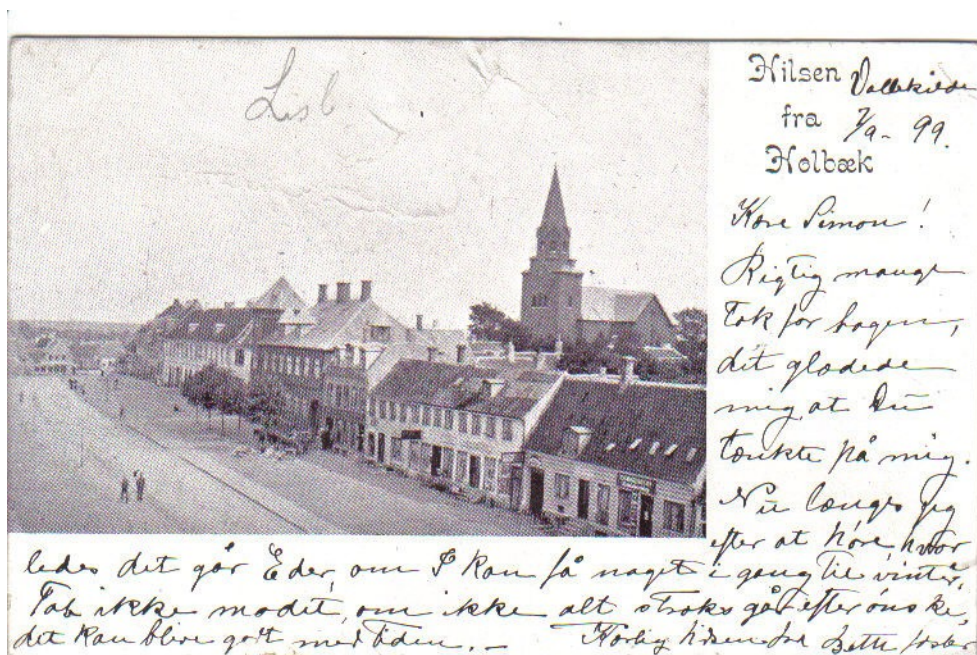 Lisb
Hilsen
fra
Holbæk
Vallekilde
7/9 - 99.
Kære Simon!
Rigtig mange
Tak for bogen,
det glædede
mig at Du
tænkte på mig.
Nu længes jeg
efter at høre, hvor
ledes det går Eder, om I kan få noget i gang til vinter,
Tab ikke modet, om ikke alt straks går efter ønske,
det kan blive godt med tiden. –
Kærlig hilsen fra